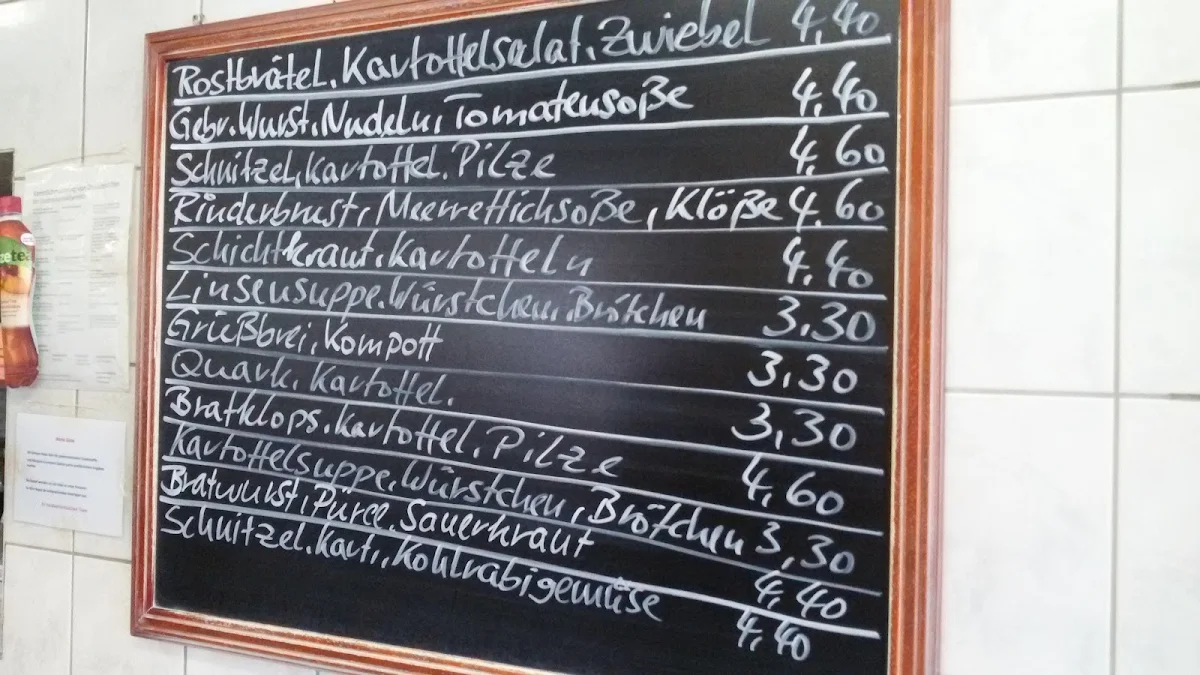 Rostbrätel, Kartoffelsalat, Zwiebel 4,40
Gebr. Wurst, Nudeln, Tomatensoße 4,40
Schnitzel, Kartoffel, Pilze 4,60
Rinderbrust, Meerrettichsoße, Klöße 4,60
Schichtkraut, Kartoffeln 4,40
Linsensuppe, Würstchen, Brötchen 3,30
Grießbrei, Kompott 3,30
Quark, Kartoffel. 3,30
Bratklops, Kartoffel, Pilze 4,60
Kartoffelsuppe, Würstchen, Brötchen 3,30
Bratwurst, Püree, Sauerkraut 4,40
Schnitzel, Kart., Kohlrabigemüse 4,40